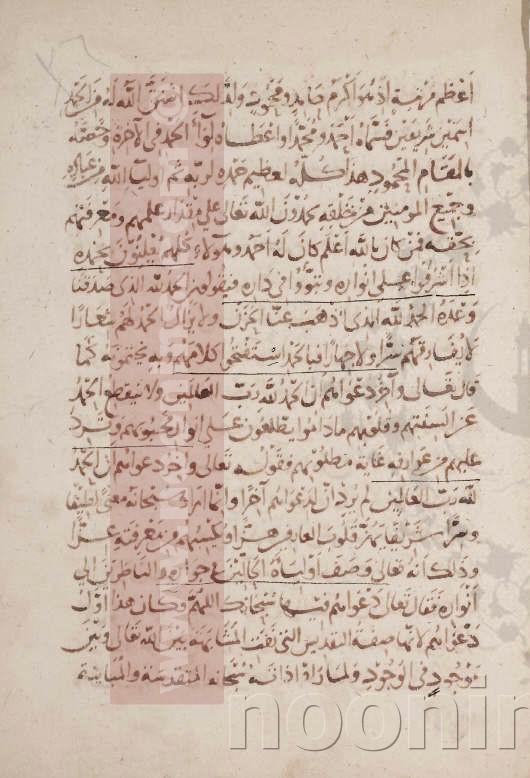 أعظم مرتبة إذ هو أكرم حامد ومحمود ولذلك اشتق الله له من الحمد
اسمين شريفين فسماه أحمد ومحمدا وأعطاه لواء الحمد في الآخرة وخصّه
بالمقام المحمود هذا كله لعظيم حمده لربه ثم أولياء الله من عباده
وجميع المؤمنين من خلقه يحمدون الله تعالى على مقدار علمهم ومعرفتهم
بحقه فمن كان بالله أعلم كان له أحمد وهؤلاء كلهم يعلنون بحمده
إذا أشرفوا على أنواره وتبوّؤا في داره فيقولون الحمد لله الذي صدقنا
وعده الحمد لله الذي أذهب عنا الحزن ولا يزال الحمد لهم شعارا
لا يفارقهم سرا ولا جهارا فبالحمد استفتحوا كلامهم وبه يختمونه كما
قال تعالى وآخر دعواهم أن الحمد لله رب العالمين ولا ينقطع الحمد
عن ألسنتهم وقلوبهم ماداموا يطلعون على أنوار محبوبهم وترد
عليهم من عوارفه غاية مطلوبهم وقوله تعالى وآخر دعواهم أن الحمد
لله رب العالمين لم يرد أن لدعواهم آخرا وإنما أراد سبحانه معنى لطيفا
وسرا شريفا يهز قلوب العارفين هزا ويكسبهم من معرفته عزا
وذلك أنه تعالى وصف أولياءه الحالين في جواره والناظرين إلى
أنواره فقال تعالى دعواهم فيها سبحانك اللهم وكان هذا أول
دعواهم لأنها صفة التقديس التي نفت المشابهة بين الله تعالى وبين
موجود في الوجود ولما رأوا ذاته سبحانه المتقدسة والمباينة
noonin